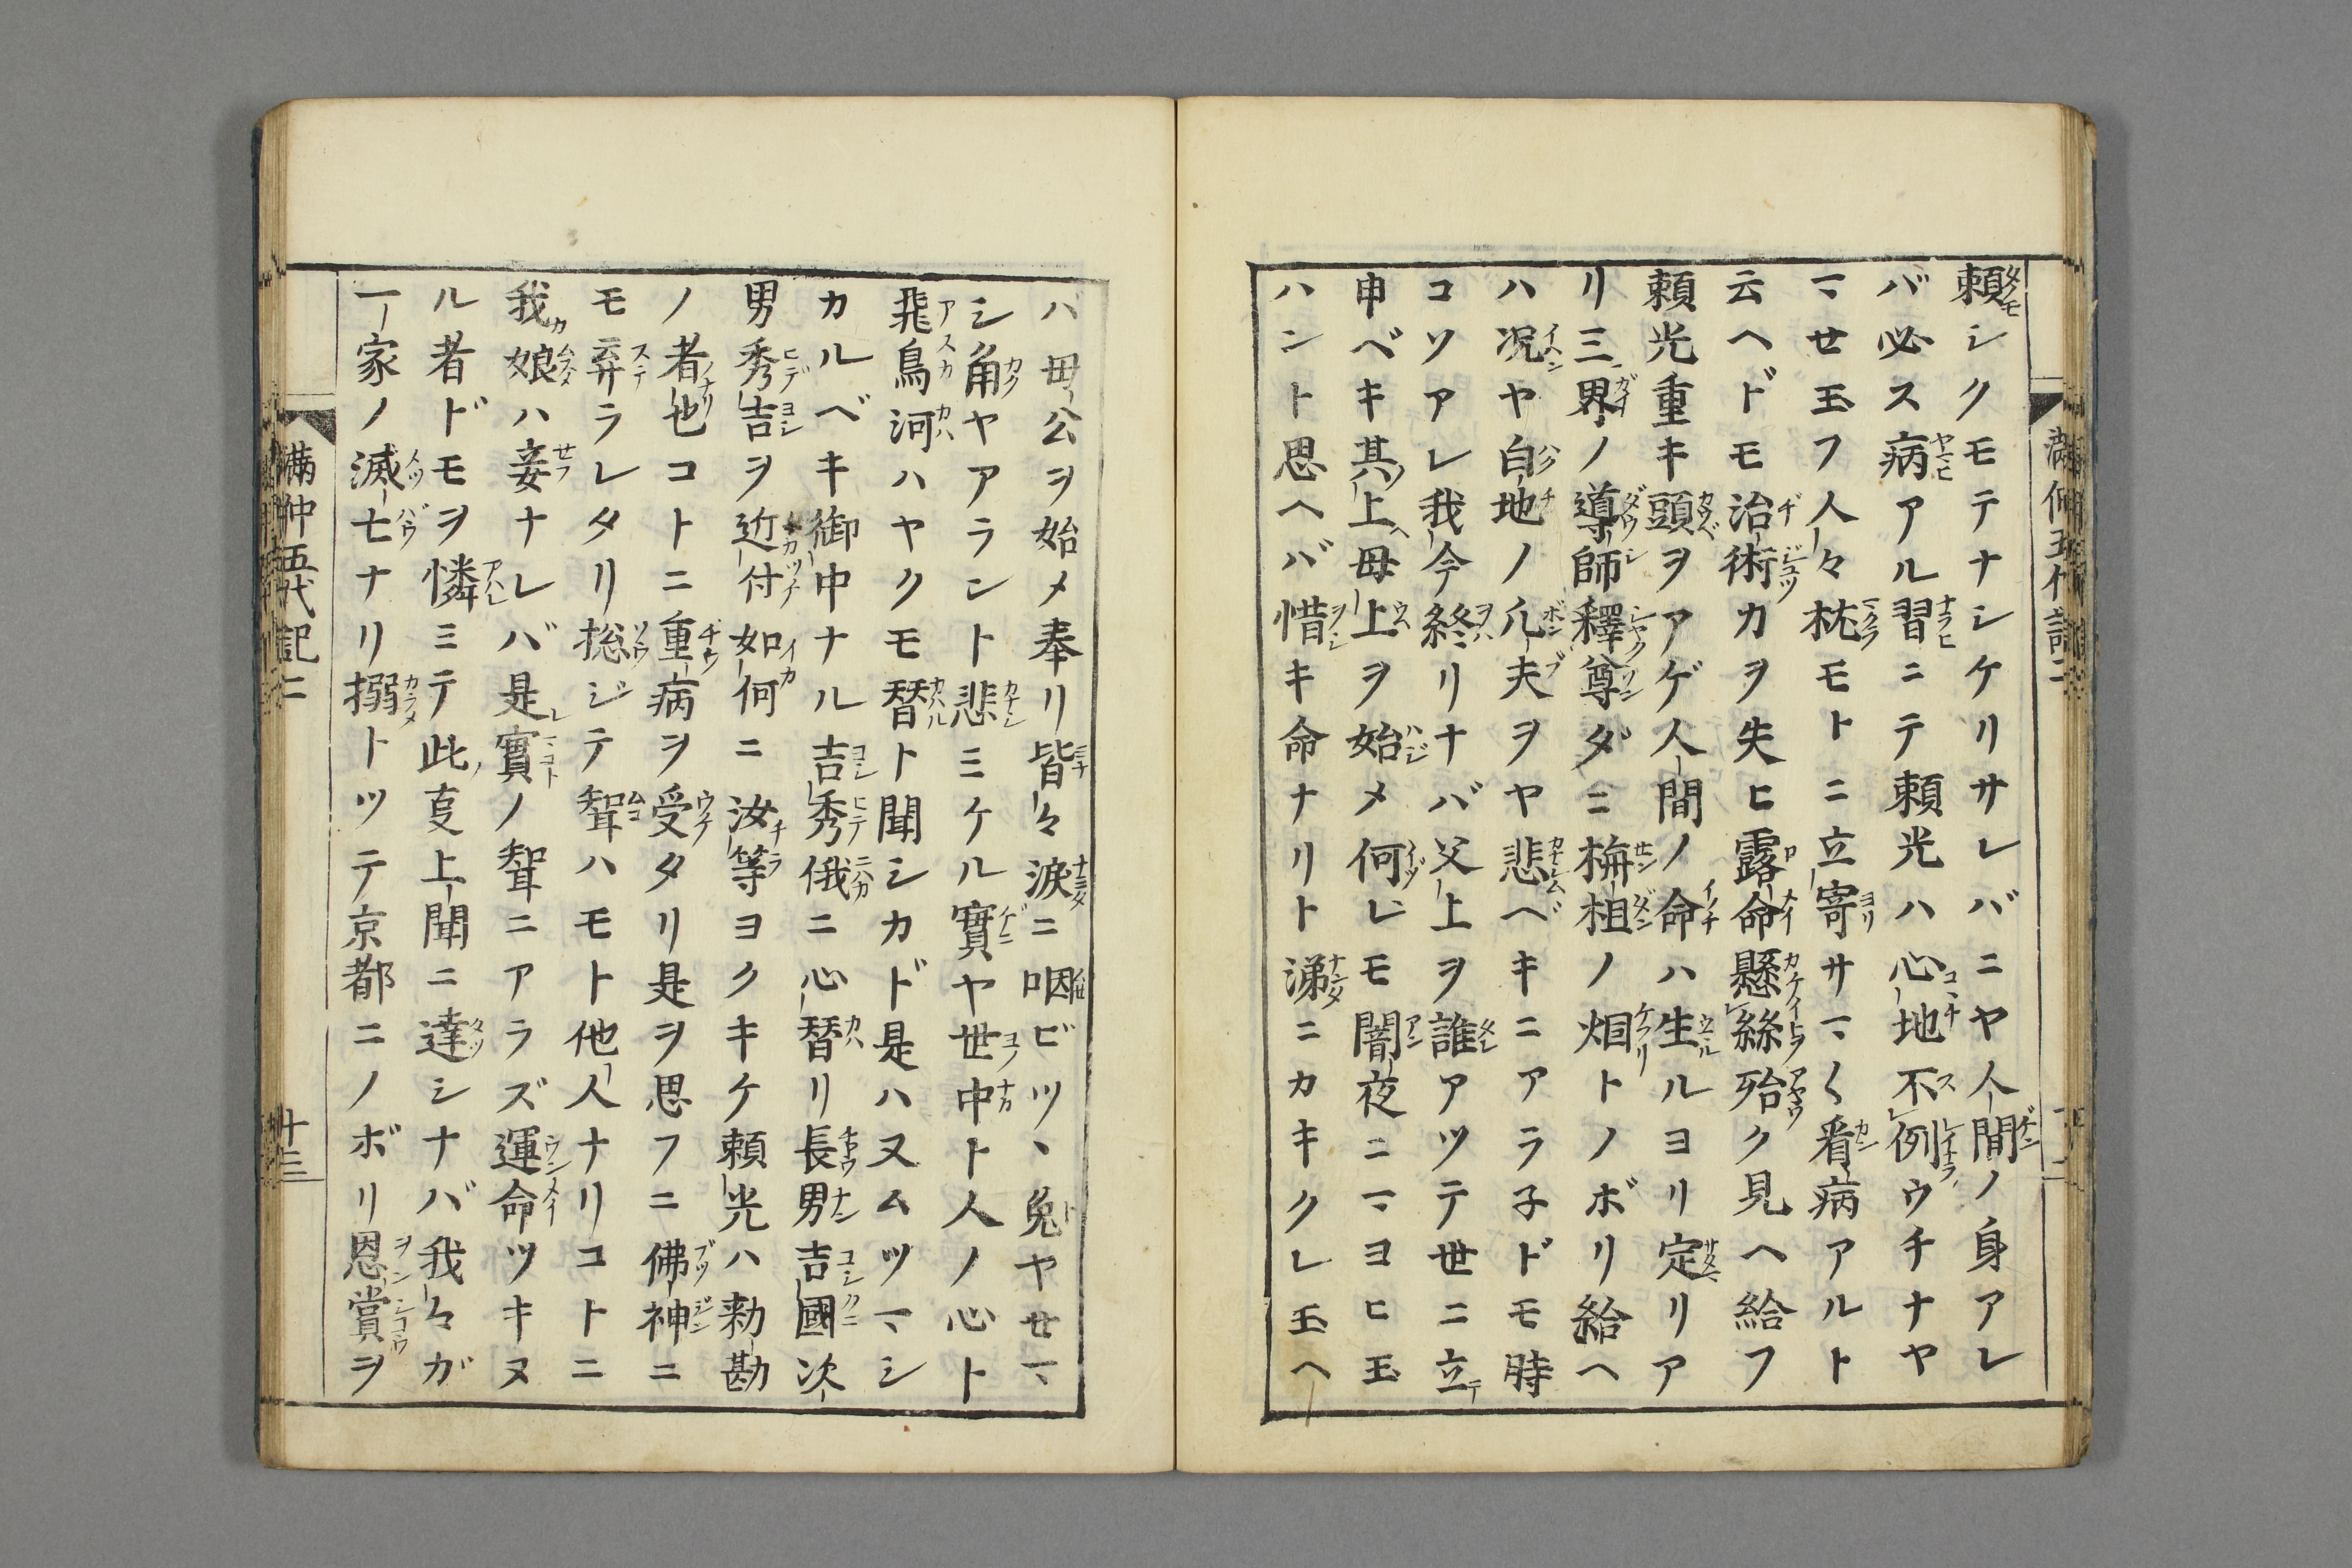 頼シクモテナシケリサレバニヤ人間ノ身アレ
バ必ス病アル習ニテ頼光ハ心地不例ウチナヤ
マセ玉フ人々枕モトニ立寄サマ〱看病アルト
云ヘドモ治術カヲ失ヒ露命懸絲殆ク見ヘ給フ
頼光重キ頭ヲアゲ人間ノ命ハ生ルヨリ定リア
リ三界ノ導師釋尊ダニ栴檀ノ烟トノボリ給ヘ
ハ况ヤ白地ノ凡夫ヲヤ悲ベキニアラ子ドモ時
コソアレ我今終リナバ父上ヲ誰アツテ世ニ立
申ベキ其上母上ヲ始メ何レモ闇夜ニマヨヒ玉
ハント思ヘバ惜キ命ナリト涕ニカキクレ玉ヘ
バ母公ヲ始メ奉リ皆々涙ニ咽ビツヽ兎ヤセマ
シ角ヤアラント悲ミケル實ヤ世中ト人ノ心ト
飛鳥河ハヤクモ替ト聞シカド是ハ又ムツマシ
カルベキ御中ナル吉秀俄ニ心替リ長男吉國次
男秀吉ヲ近付如何ニ汝等ヨクキケ頼光ハ勅勘
ノ者也コトニ重病ヲ受タリ是ヲ思フニ佛神ニ
モ弃ラレタリ惣ジテ聟ハモト他人ナリコトニ
我娘ハ妾ナレバ是實ノ聟ニアラズ運命ツキヌ
ル者ドモヲ憐ミテ此㕝上聞ニ達シナバ我々ガ
一家ノ滅亡ナリ搦トツテ京都ニノボリ恩賞ヲ
滿仲五代記二
十三